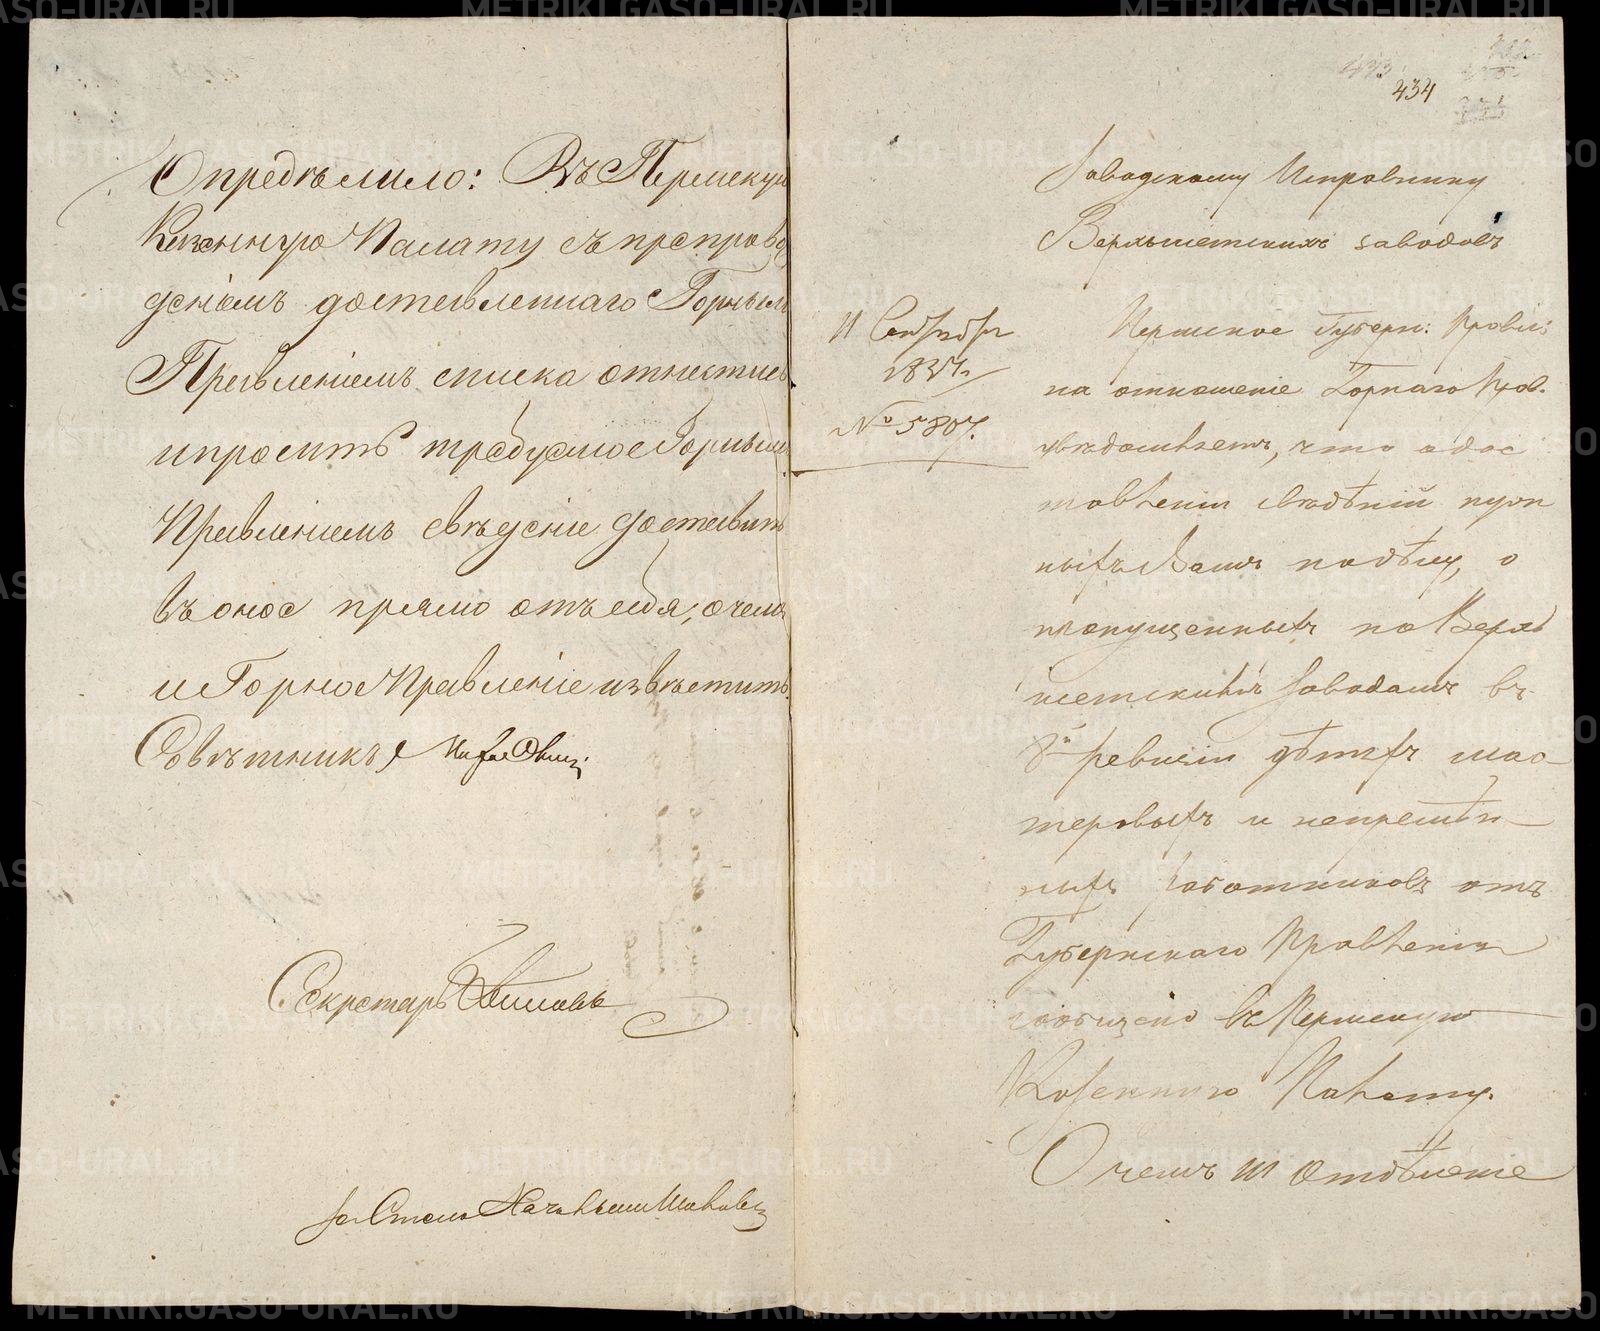 Опредѣлило: Въ Пермскую
Казенную Палату съ препрово
деніемъ доставленнаго Горнымъ
Правленіемъ списка отнестись
и просить требуемое Горнымъ
Правленіемъ свѣденіе доставить
въ оное прямо отъ себя; о чемъ
и Горное Правленіе извѣстить.
Совѣтникъ
Секретарь
за Столо Начальника
434
Заводскому Исправнику
Верхъисетскихъ заводовъ
11 Сентября
1837.
№ 5807.
Пермское Губерн: Правл:
на отношеніе Горнаго Прав.
увѣдомляетъ, что о дос
тавленіи свѣдѣній нуж
ныхъ Вамъ по дѣлу, о
пропущенныхъ по Верхъ
исетскимъ заводамъ въ
8й ревизіи дѣтяхъ мас
теровыхъ и непремѣн
ныхъ работниковъ отъ
Губернскаго Правленія
сообщено въ Пермскую
Казенную Палату.
О чемъ III Отдѣленіе
METRIKI.GASO-URAL.RU